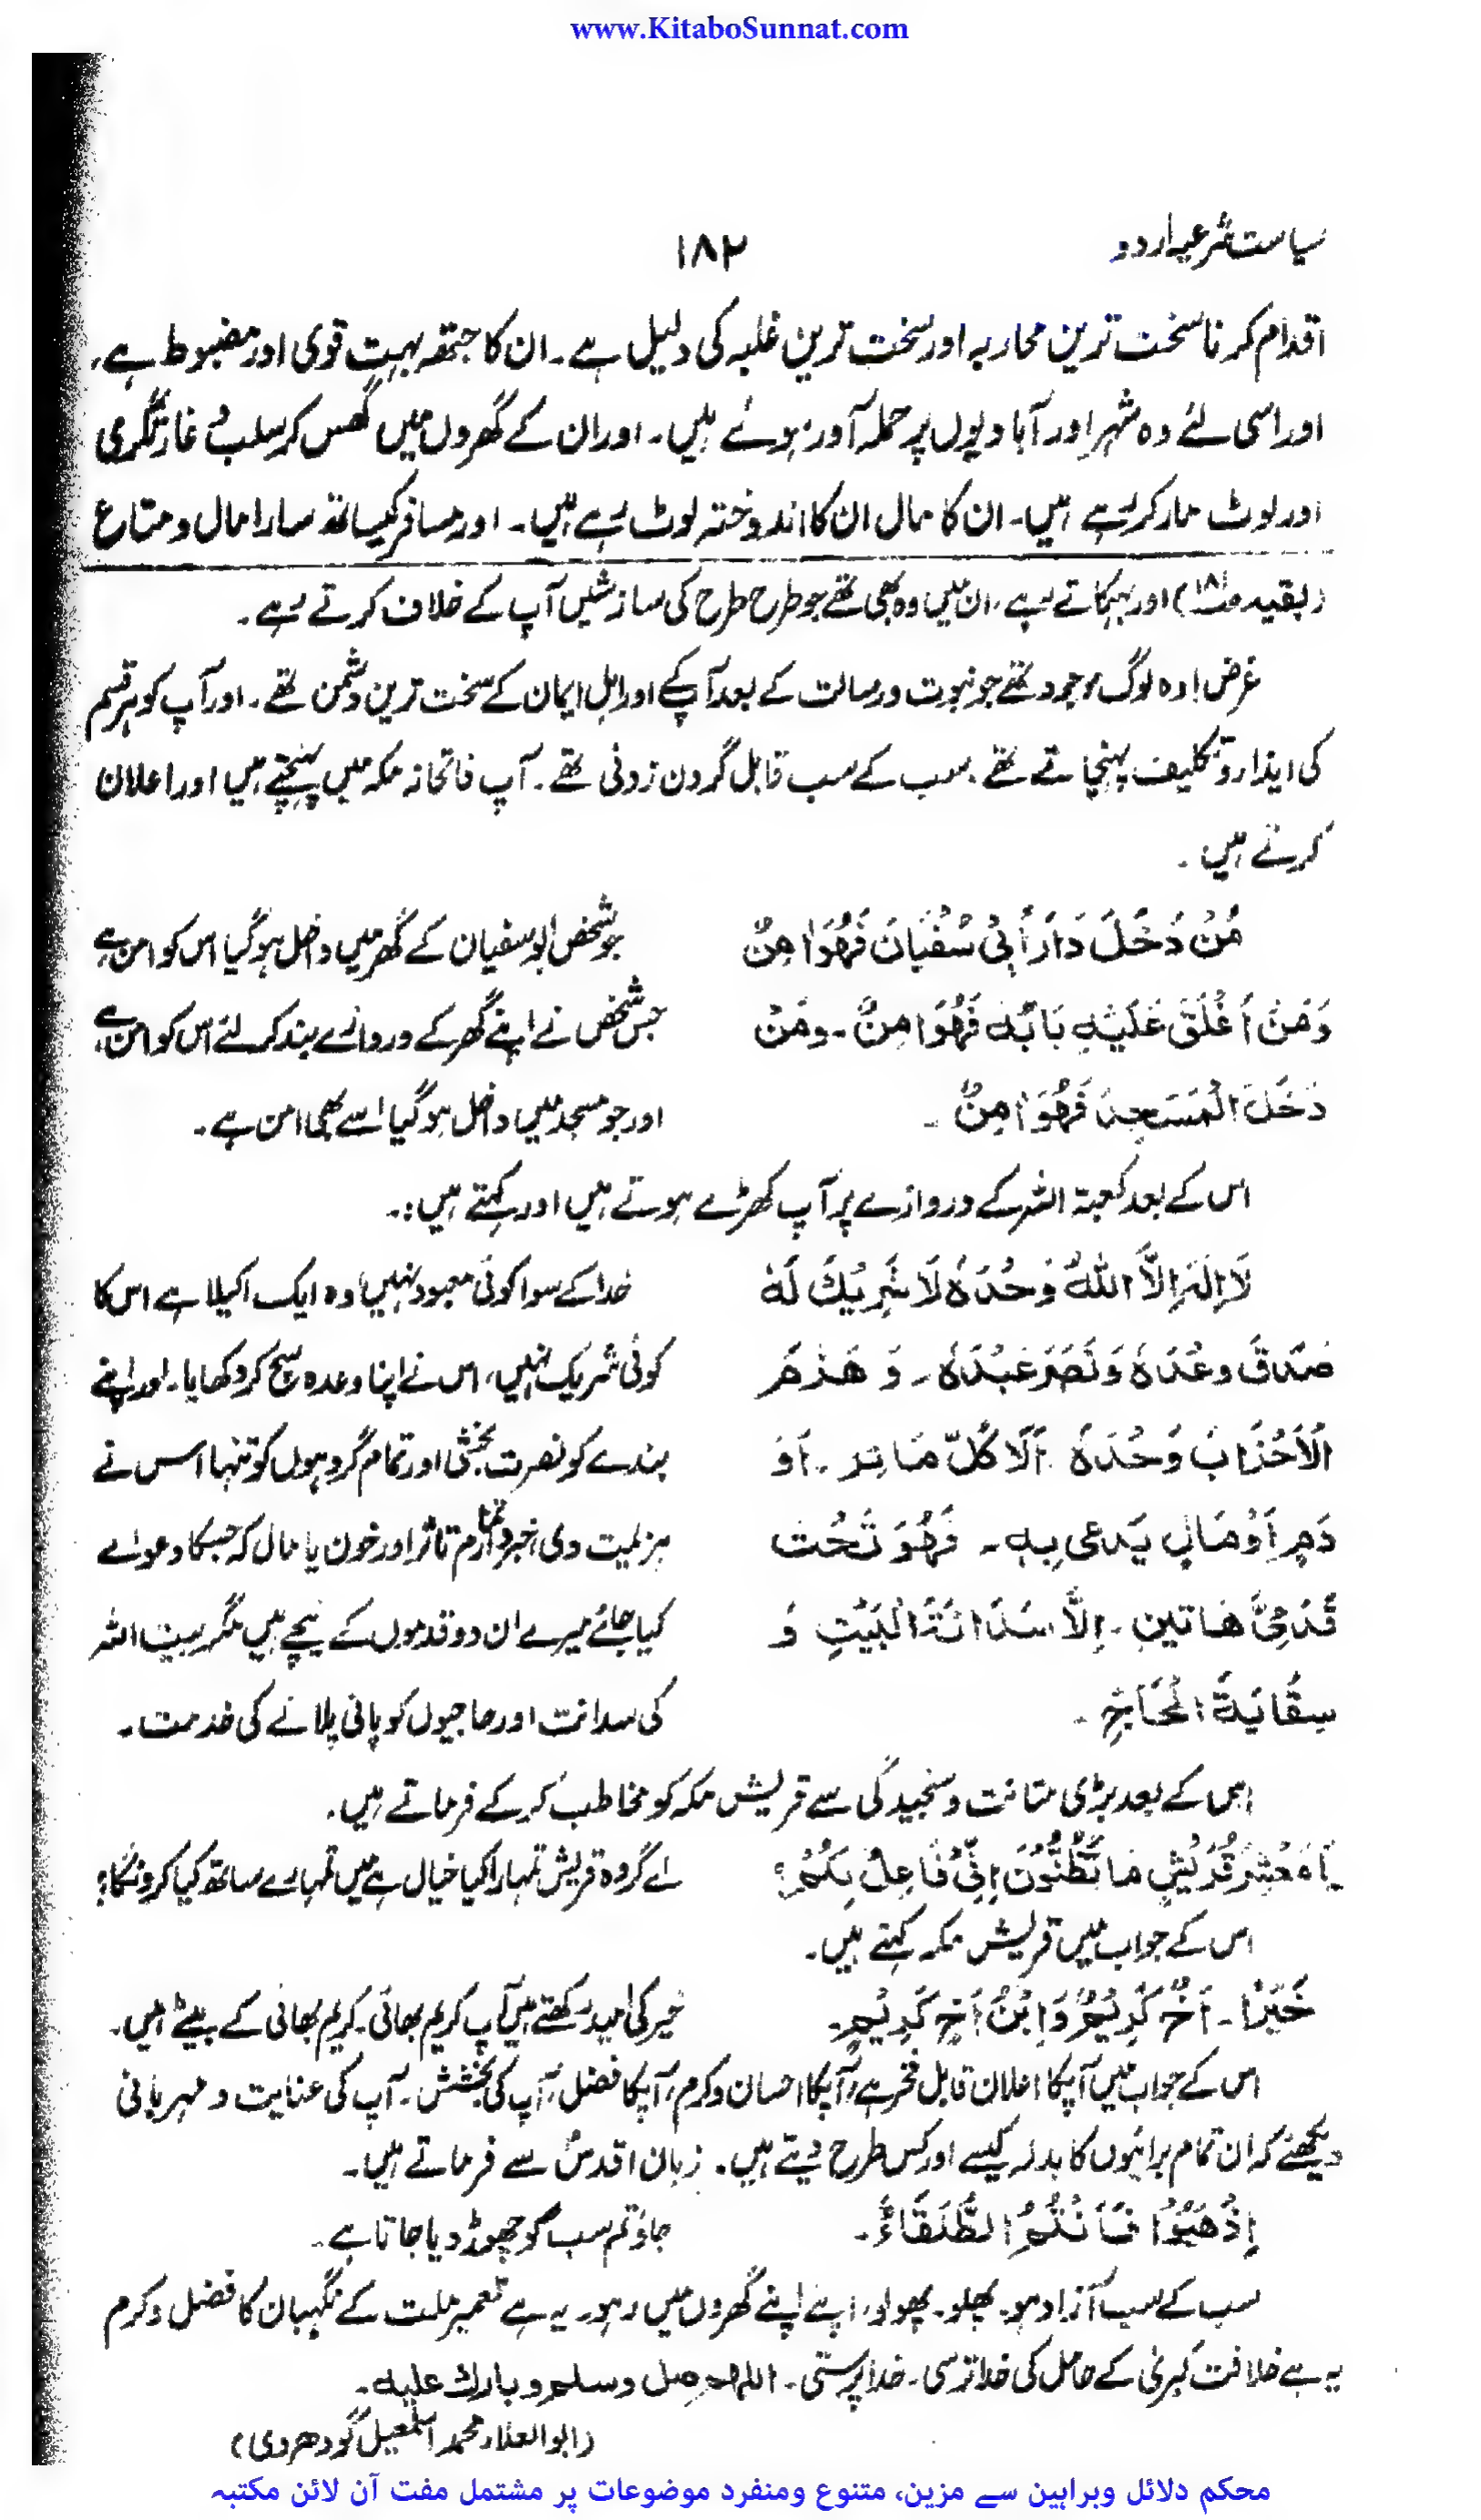 www.KitaboSunnat.com
سیاست شرعیہ اردو
۱۸۲
اقدام کرنا سخت ترین محاربہ اور سخت ترین غلبہ کی دلیل ہے۔ ان کا جتھہ بہت قوی اور مضبوط ہے،
اور اسی لئے وہ شہر اور آبادیوں پر حملہ آور ہوئے ہیں۔ اور ان کے گھروں میں گھس کر سلب و غارتگری
اور لوٹ مار کر رہے ہیں۔ ان کا مال ان کا اندوختہ لوٹ رہے ہیں۔ اور مسافر کیساتھ سارا مال و متاع
(بقیہ ص۱۸۱) اور بہکاتے رہے، ان میں وہ بھی تھے جو طرح طرح کی سازشیں آپ کے خلاف کرتے رہے۔
غرض! وہ لوگ موجود تھے جو نبوت و رسالت کے بعد آپکے اور اہل ایمان کے سخت ترین دشمن تھے۔ اور آپ کو ہر قسم
کی ایذار و تکلیف پہنچاتے تھے۔ سب کے سب قابل گردن زدنی تھے۔ آپ فاتحانہ مکہ میں پہنچتے ہیں اور اعلان
کرتے ہیں۔
مَنْ دَخَلَ دَارَ أَبِیْ سُفْیَانَ فَهُوَ اٰمِنٌ
جو شخص ابو سفیان کے گھر میں داخل ہو گیا اس کو امن ہے
وَمَنْ اَغْلَقَ عَلَیْهِ بَابُهٗ فَهُوَ اٰمِنٌ۔ ومَنْ
جس شخص نے اپنے گھر کے دروازے بند کر لئے اس کو امن ہے
دَخَلَ الْمَسْجِدَ فَهُوَ اٰمِنٌ۔
اور جو مسجد میں داخل ہو گیا اسے بھی امن ہے۔
اس کے بعد کعبۃ اللہ کے دروازے پر آپ کھڑے ہوتے ہیں اور کہتے ہیں:۔
لَا اِلٰهَ اِلَّا اللّٰهُ وَحْدَهٗ لَا شَرِیْكَ لَهٗ
خدا کے سوا کوئی معبود نہیں وہ ایک اکیلا ہے اس کا
صَدَقَ وعْدَهٗ وَنَصَرَ عَبْدَهٗ۔ وَ هَزَمَ
کوئی شریک نہیں، اس نے اپنا وعدہ سچ کر دکھایا۔ اور اپنے
الْاَحْزَابَ وَحْدَهٗ اَلَا كُلّ مَاثِر۔ اَوْ
بندے کو نصرت بخشی اور تمام گروہوں کو تنہا اس نے
دَمٍ اَوْ مَالٍ یَدعی بِهٖ۔ فَهُوَ تَحْتَ
ہزیمت دی، خبردار تمام تاثر اور خون یا مال کہ جسکا دعواے
قَدَمَیَّ هَاتین۔ اِلَّا سَدَانَةَ الْبَیْتِ وَ
کیا جائے میرے ان دو قدموں کے نیچے ہیں مگر بیت اللہ
سِقَایَةَ الْحَاجِّ۔
کی سدانت اور حاجیوں کو پانی پلانے کی خدمت۔
اس کے بعد بڑی متانت و سنجیدگی سے قریش مکہ کو مخاطب کر کے فرماتے ہیں۔
یَا مَعْشِرَ قُرَیْشٍ مَا تَظُنُّوْنَ اِنِّیْ فَاعِلٌ بِكُمْ؟
اے گروہ قریش تمہارا کیا خیال ہے میں تمہارے ساتھ کیا کرونگا؟
اس کے جواب میں قریش مکہ کہتے ہیں۔
خَیْرًا۔ اَخٌ كَرِیْمٌ وَابْنُ اَخٍ كَرِیْمٍ۔
خیر کی امید رکھتے ہیں آپ کریم بھائی۔ کریم بھائی کے بیٹے ہیں۔
اس کے جواب میں آپکا اعلان قابل فخر ہے، آپکا احسان و کرم، آپکا فضل، آپ کی بخشش۔ آپ کی عنایت و مہربانی
دیکھئے کہ ان تمام برائیوں کا بدلہ کیسے اور کس طرح دیتے ہیں۔ زبان اقدس سے فرماتے ہیں۔
اِذْهَبُوْا فَاَنْتُمُ الطُّلَقَآءُ۔
جاؤ تم سب کو چھوڑ دیا جاتا ہے۔
سب کے سب آزاد ہو۔ پھلو۔ پھولو، اپنے اپنے گھروں میں رہو۔ یہ ہے تعمیر ملت کے نگہبان کا فضل و کرم
یہ ہے خلافت کبریٰ کے حامل کی خدا ترسی۔ خدا پرستی۔ اللهم صل وسلم و بارك علیه۔
(ابو العلاء محمد اسمٰعیل گودھروی)
محکم دلائل وبراہین سے مزین، متنوع ومنفرد موضوعات پر مشتمل مفت آن لائن مکتبہ